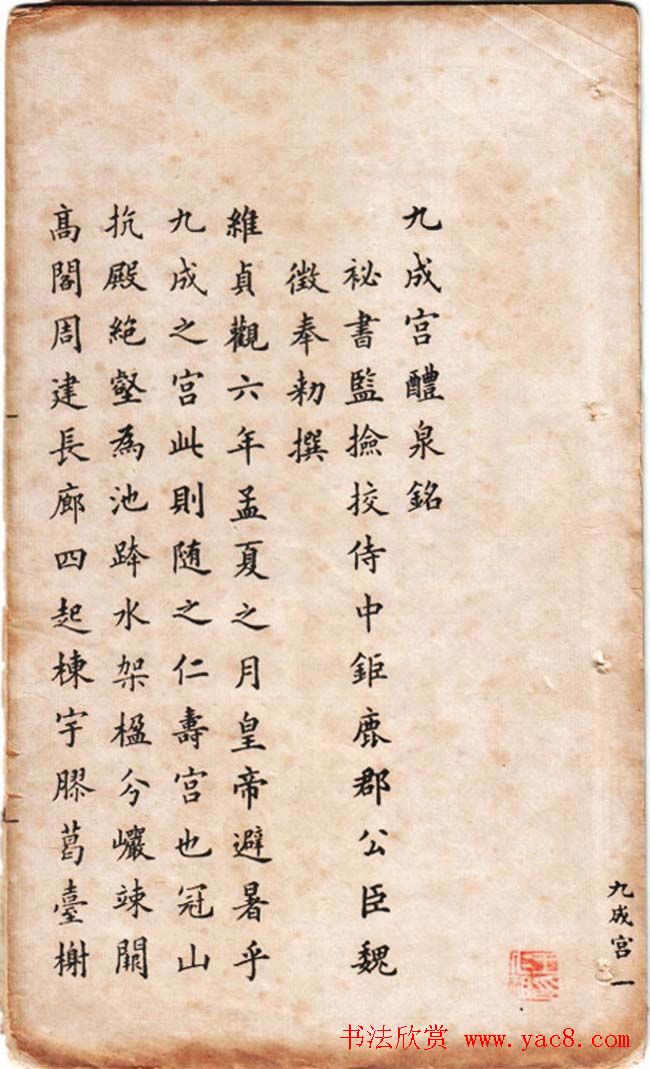 九成宮醴泉銘
秘書監撿挍侍中鉅鹿郡公臣魏
徵奉勑撰
維貞觀六年孟夏之月皇帝避暑乎
九成之宮此則随之仁壽宮也冠山
抗殿絶壑為池跨水架楹分巗竦闕
高閣周建長廊四起棟宇膠葛臺榭
九成宮 一
书法欣赏 www.yac8.com